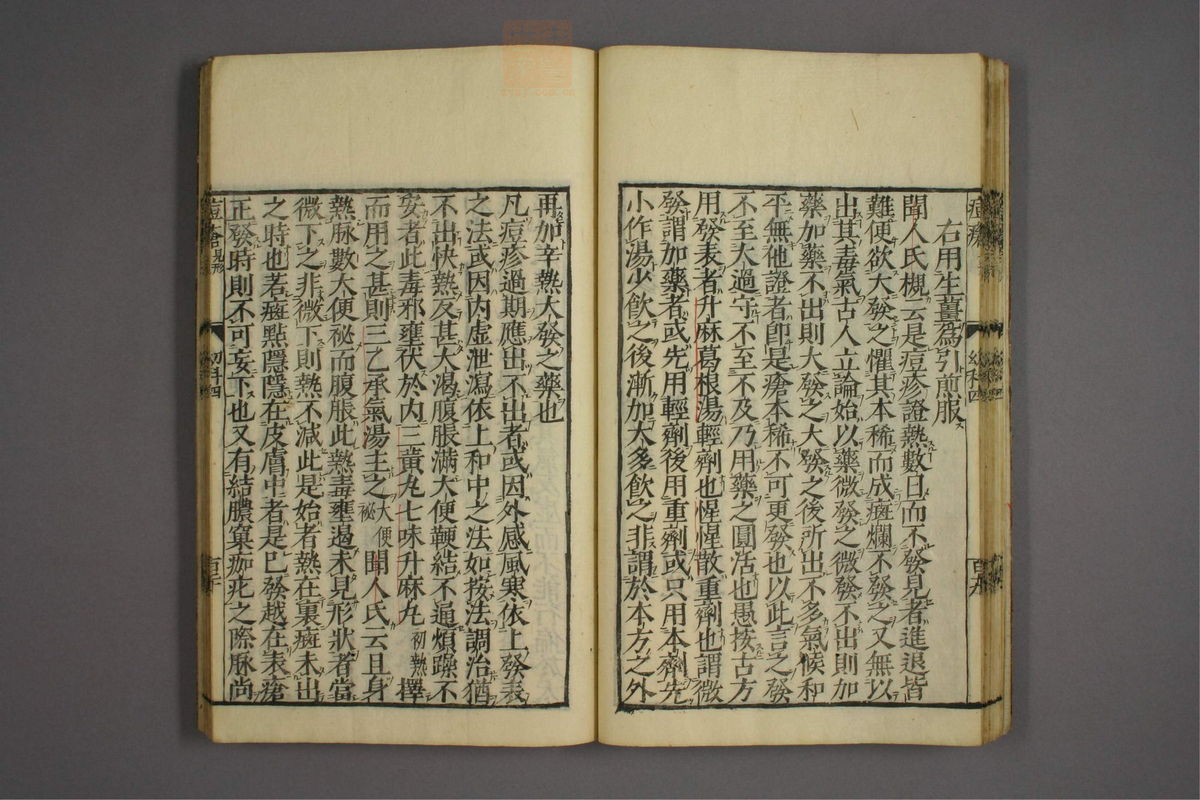 右用生薑為引煎服
聞人氏槻云是痘疹證熱數日而不發見者進退皆
難便欲大發之懼其本稀而成斑爛不發之又無以
出其毒氣古人立論始以藥微發之微發不出則加
藥加藥不出則大發之大發之後所出不多氣候和
平無他證者卽是瘡本稀不可更發也以此言之發
不至太過守不至不及乃用藥之圓活也愚按古方
用發表者升麻葛根湯輕劑也惺惺散重劑也謂微
發謂加藥者或先用輕劑後用重劑或只用本劑先
小作湯少飲之後漸加大多飲之非謂於本方之外
再加辛熱大發之藥也
凡痘疹過期應出不出者或因外感風寒依上發表
之法或因内虛泄瀉依上和中之法如按法調治猶
不出快熱反甚大渴腹脹滿大便鞕結不通煩躁不
安者此毒邪壅伏於内三黃丸七味升麻丸初熱擇
而用之甚則三乙承氣湯主之大便祕聞人氏云且身
熱脉數大便祕而腹脹此熱毒壅遏未見形狀者當
微下之非微下則熱不減此是始者熱在裏斑未出
之時也若斑㸃隱隱在皮膚中者是已發越在表瘡
正發時則不可妄下也又有結膿窠痂疕之際脉尚
痘瘡 見形
幼科四